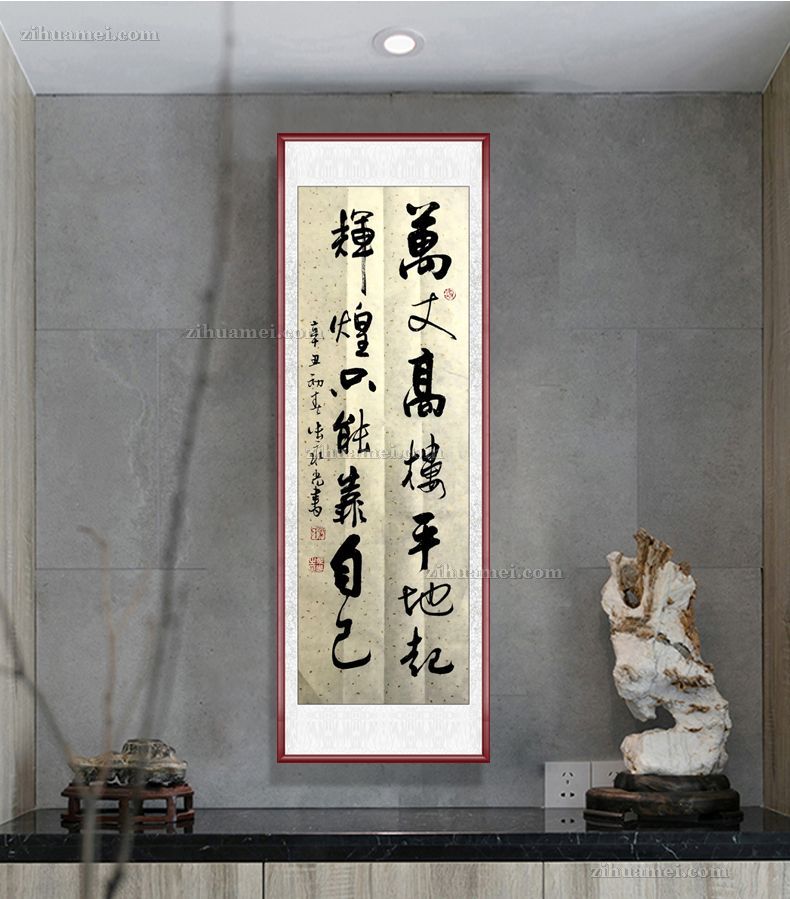 萬丈高樓平地起
輝煌只能靠自己
辛丑初春
書
zihuamei.com
zihuamei.com
zihuamei.com
zihuamei.com
zihuamei.com
zihuamei.com